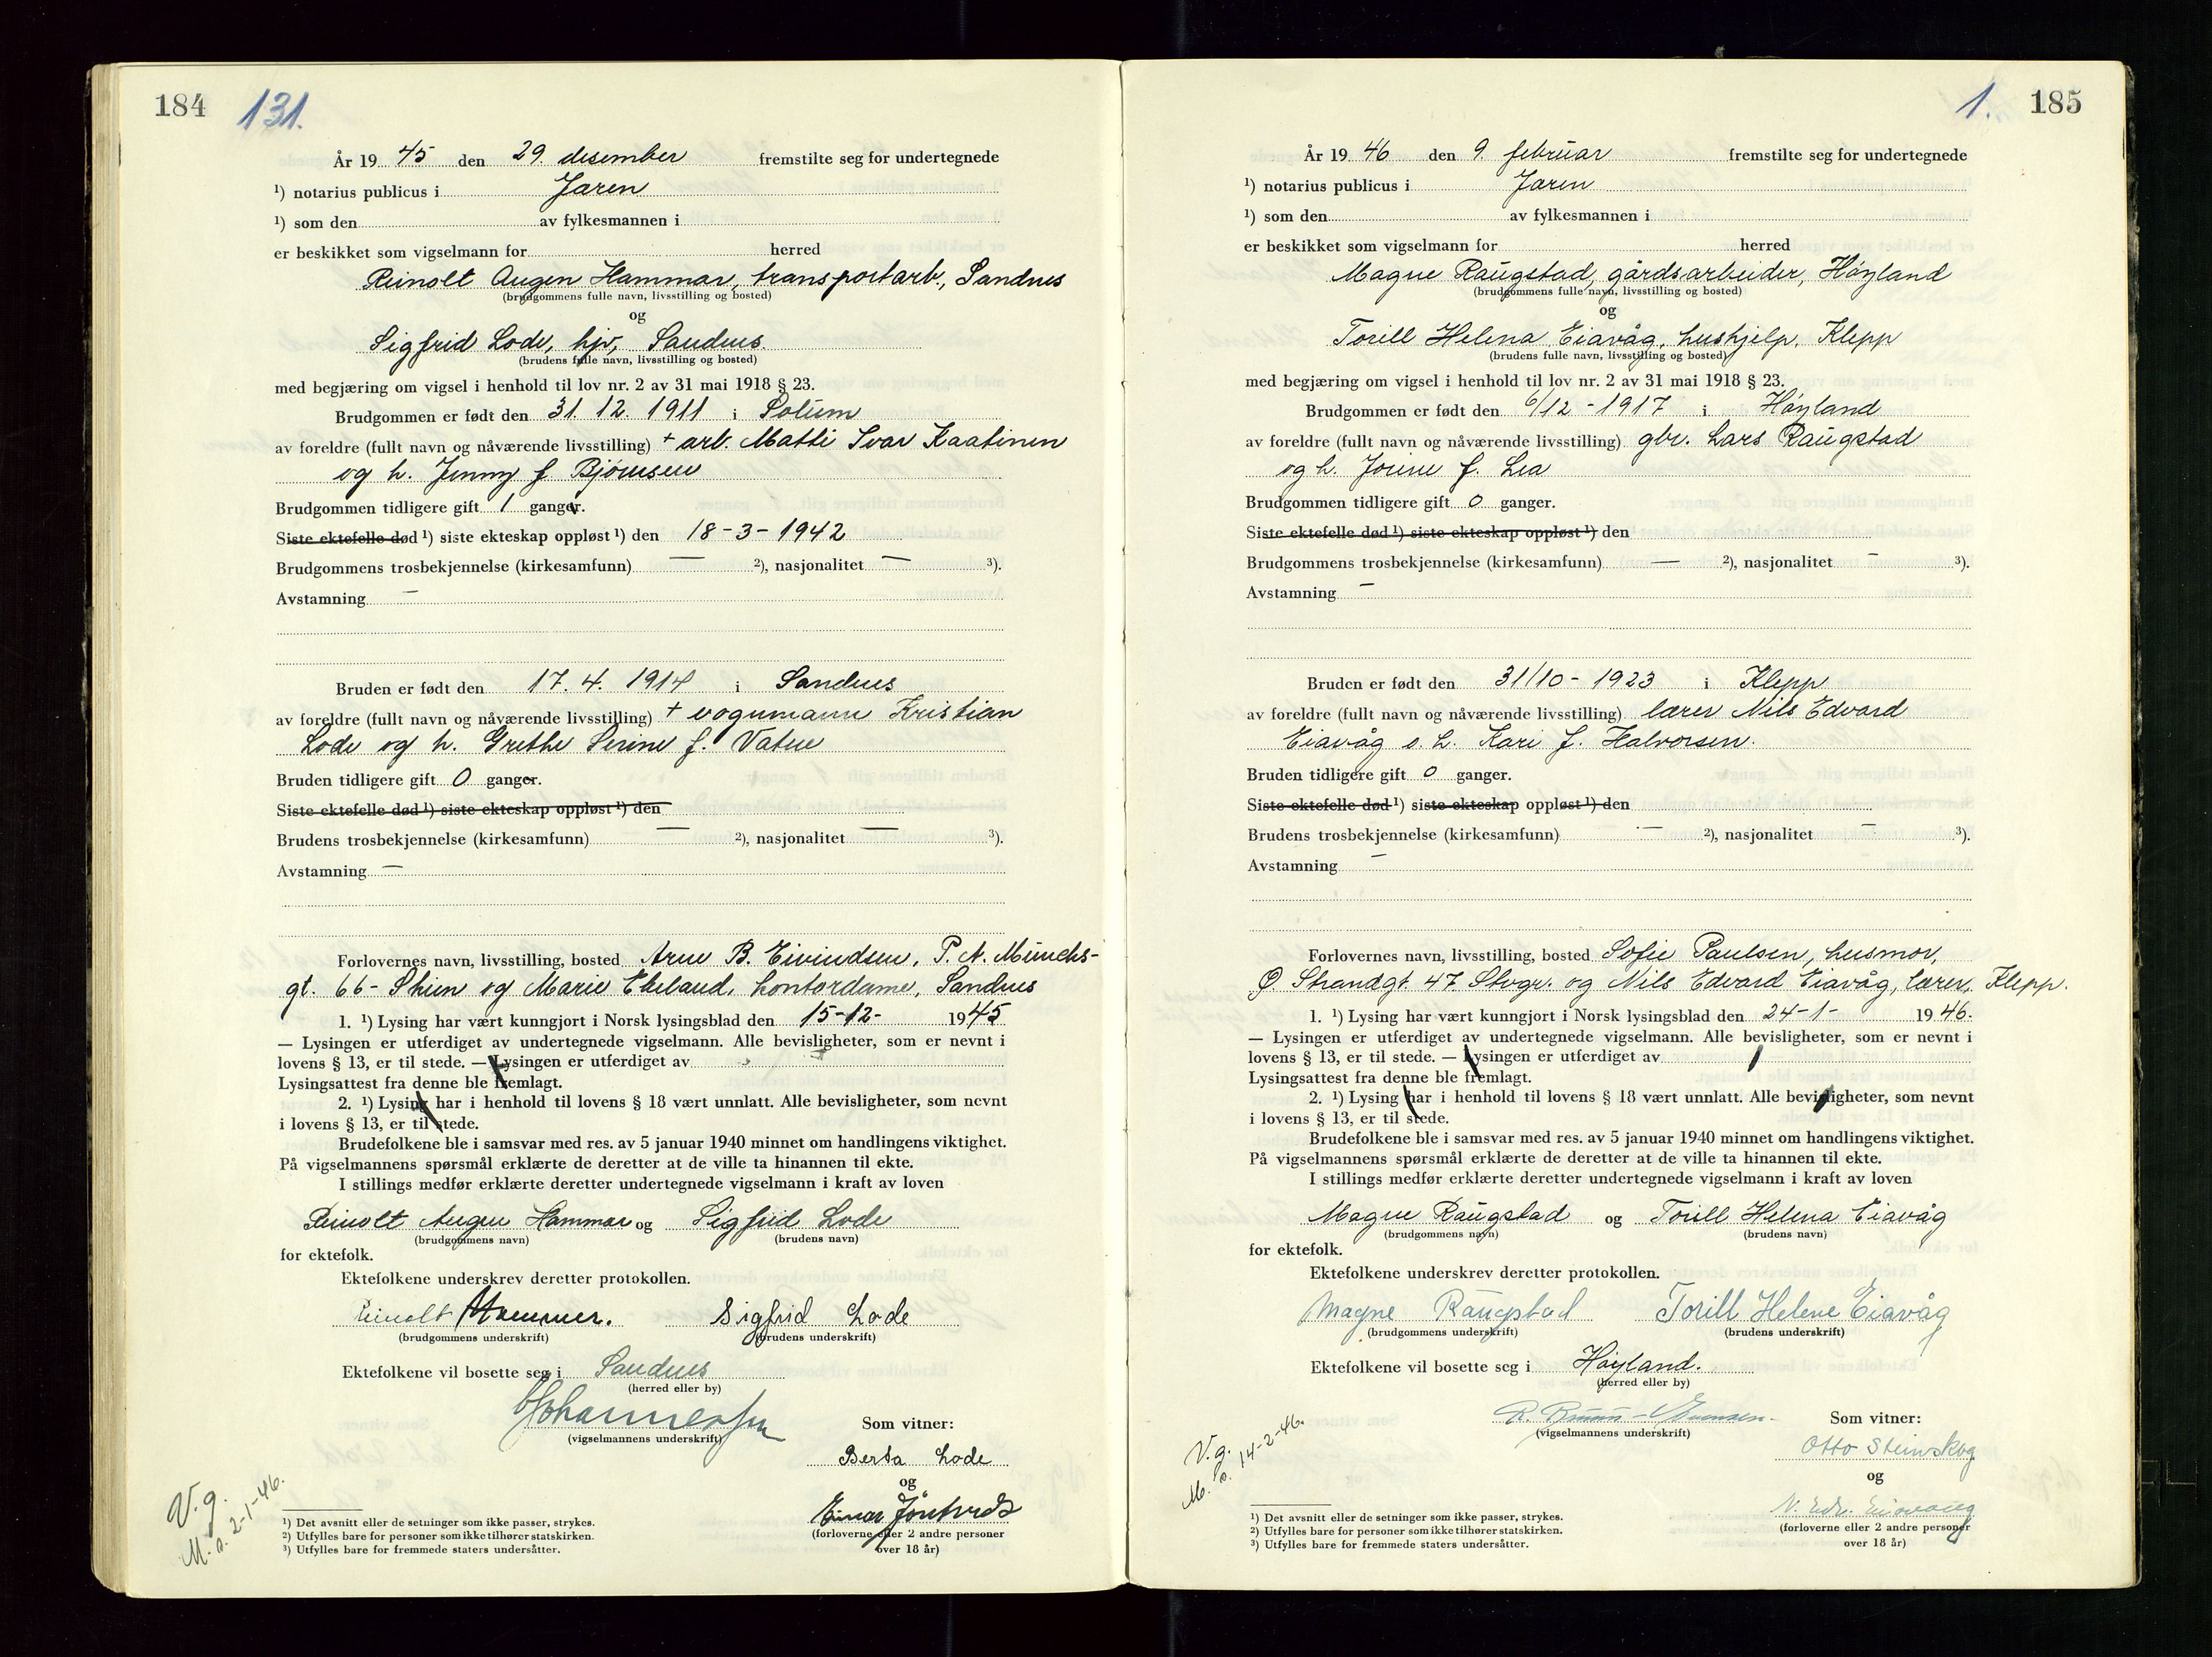 184 131.
År 19 45 den 29 desember fremstilte seg for undertegnede
¹) notarius publicus i Jæren
¹) som den av fylkesmannen i
er beskikket som vigselmann for herred
Reinolt Augen Hammar, transportarb., Sandnes
(brudgommens fulle navn, livsstilling og bosted)
og
Sigfrid Lode, hjv, Sandnes
(brudens fulle navn, livsstilling og bosted)
med begjæring om vigsel i henhold til lov nr. 2 av 31 mai 1918 § 23.
Brudgommen er født den 31. 12. 1911 i Solum
av foreldre (fullt navn og nåværende livsstilling) + arb. Matti Ivar Kaatinen
og h. Jenny f Bjørnsen
Brudgommen tidligere gift 1 ganger.
Siste ektefelle død ¹) siste ekteskap oppløst ¹) den 18-3-1942
Brudgommens trosbekjennelse (kirkesamfunn) — ²), nasjonalitet — ³).
Avstamning —
Bruden er født den 17. 4. 1914 i Sandnes
av foreldre (fullt navn og nåværende livsstilling) + vognmann Kristian
Lode og h. Grethe Serine f. Vatne
Bruden tidligere gift 0 ganger.
Siste ektefelle død ¹) siste ekteskap oppløst ¹) den
Brudens trosbekjennelse (kirkesamfunn) — ²), nasjonalitet — ³).
Avstamning —
Forlovernes navn, livsstilling, bosted Arne B. Eivindsen, P. A. Münchs-
gt. 66 - Skien og Marie Ekeland, kontordame, Sandnes
1. ¹) Lysing har vært kunngjort i Norsk lysingsblad den 15-12- 1945
— Lysingen er utferdiget av undertegnede vigselmann. Alle bevisligheter, som er nevnt i
lovens § 13, er til stede. — Lysingen er utferdiget av
Lysingsattest fra denne ble fremlagt.
2. ¹) Lysing har i henhold til lovens § 18 vært unnlatt. Alle bevisligheter, som nevnt
i lovens § 13, er til stede.
Brudefolkene ble i samsvar med res. av 5 januar 1940 minnet om handlingens viktighet.
På vigselmannens spørsmål erklærte de deretter at de ville ta hinannen til ekte.
I stillings medfør erklærte deretter undertegnede vigselmann i kraft av loven
Reinolt Augen Hammar og Sigfrid Lode
(brudgommens navn) (brudens navn)
for ektefolk.
Ektefolkene underskrev deretter protokollen.
Reinolt Hammer. Sigfrid Lode
(brudgommens underskrift) (brudens underskrift)
Ektefolkene vil bosette seg i Sandnes
(herred eller by)
Johannessen
(vigselmannens underskrift)
Som vitner:
Berta Lode
og
Einar
(forloverne eller 2 andre personer
over 18 år)
V.g.
M. s. 2-1-46.
¹) Det avsnitt eller de setninger som ikke passer, strykes.
²) Utfylles bare for personer som ikke tilhører statskirken.
³) Utfylles bare for fremmede staters undersåtter.
1. 185
År 19 46 den 9. februar fremstilte seg for undertegnede
¹) notarius publicus i Jæren
¹) som den av fylkesmannen i
er beskikket som vigselmann for herred
Magne Raugstad, gårdsarbeider, Høyland
(brudgommens fulle navn, livsstilling og bosted)
og
Torill Helena Eiavåg, hushjelp, Klepp
(brudens fulle navn, livsstilling og bosted)
med begjæring om vigsel i henhold til lov nr. 2 av 31 mai 1918 § 23.
Brudgommen er født den 6/12 - 1917 i Høyland
av foreldre (fullt navn og nåværende livsstilling) gbr. Lars Raugstad
og h. Jorine f. Lea
Brudgommen tidligere gift 0 ganger.
Siste ektefelle død ¹) siste ekteskap oppløst ¹) den
Brudgommens trosbekjennelse (kirkesamfunn) — ²), nasjonalitet — ³).
Avstamning —
Bruden er født den 31/10 - 1923 i Klepp
av foreldre (fullt navn og nåværende livsstilling) lærer Nils Edvard
Eiavåg o. h. Kari f. Halvorsen.
Bruden tidligere gift 0 ganger.
Siste ektefelle død ¹) siste ekteskap oppløst ¹) den
Brudens trosbekjennelse (kirkesamfunn) — ²), nasjonalitet — ³).
Avstamning —
Forlovernes navn, livsstilling, bosted Sofie Paulsen, husmor,
Ø Strandgt. 47 Stvgr. og Nils Edvard Eiavåg, lærer, Klepp.
1. ¹) Lysing har vært kunngjort i Norsk lysingsblad den 24-1- 19 46.
— Lysingen er utferdiget av undertegnede vigselmann. Alle bevisligheter, som er nevnt i
lovens § 13, er til stede. — Lysingen er utferdiget av
Lysingsattest fra denne ble fremlagt.
2. ¹) Lysing har i henhold til lovens § 18 vært unnlatt. Alle bevisligheter, som nevnt
i lovens § 13, er til stede.
Brudefolkene ble i samsvar med res. av 5 januar 1940 minnet om handlingens viktighet.
På vigselmannens spørsmål erklærte de deretter at de ville ta hinannen til ekte.
I stillings medfør erklærte deretter undertegnede vigselmann i kraft av loven
Magne Raugstad og Torill Helena Eiavåg
(brudgommens navn) (brudens navn)
for ektefolk.
Ektefolkene underskrev deretter protokollen.
Magne Raugstad Torill Helene Eiavåg
(brudgommens underskrift) (brudens underskrift)
Ektefolkene vil bosette seg i Høyland.
(herred eller by)
(vigselmannens underskrift)
Som vitner:
Otto Steinskog
og
N. Edv. Eiavaag
(forloverne eller 2 andre personer
over 18 år)
V.g.
M. s. 14-2-46.
¹) Det avsnitt eller de setninger som ikke passer, strykes.
²) Utfylles bare for personer som ikke tilhører statskirken.
³) Utfylles bare for fremmede staters undersåtter.